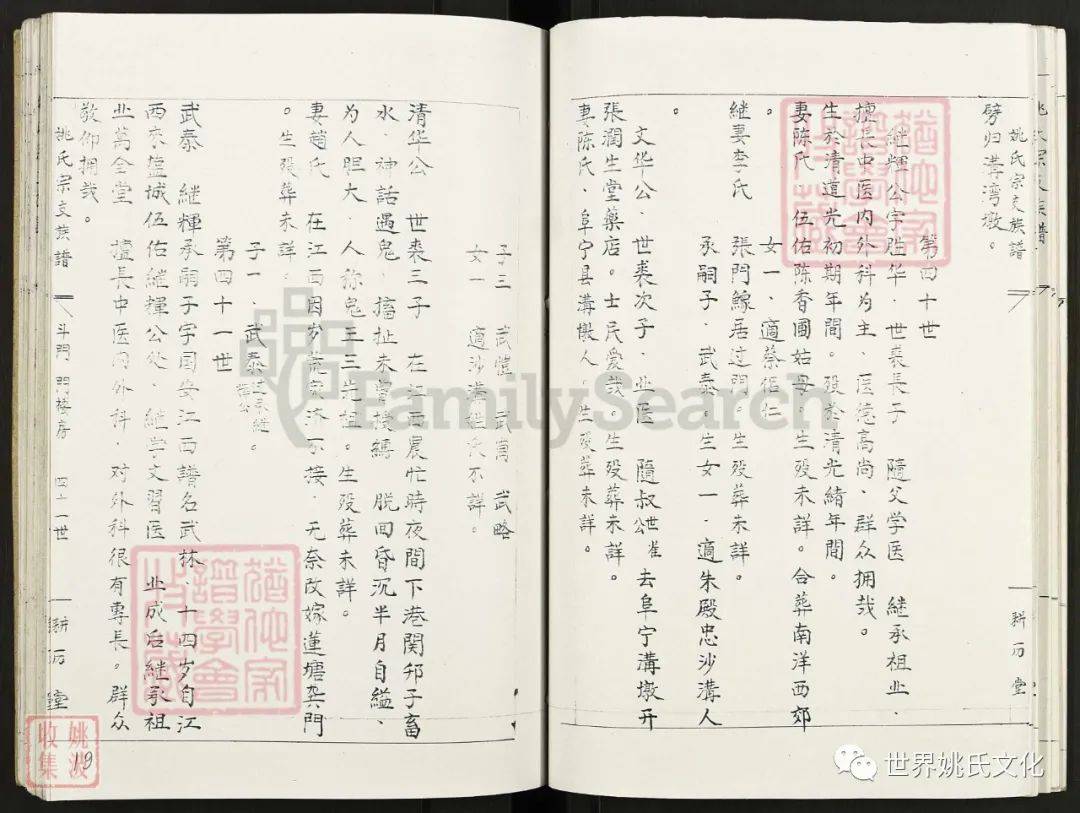 姚氏宗支族譜
劈归溝湾墩。
第四十世
继輝公字胜华 世裘長子 隨父学医 继承祖业.
擅長中医内外科为主.医德高尚.群众拥哉。
生於清道光初期年間。殁於清光緒年間。
妻陈氏 伍佑陈香圃姑母.生殁未詳。合葬南洋西郊
。 女一、適蔡佢仁
继妻李氏 張門鰁居过門。生殁葬未詳。
承嗣子.武泰。生女一.適朱殿忠沙溝人
。
文华公.世裘次子.业医 隨叔公世雀去阜宁溝墩开
張潤生堂藥店。士民爱哉。生殁葬未詳。
妻陈氏.阜宁县溝墩人.生殁葬未詳。
耕历堂
子三 武愷 武尚 武略
女一 適沙溝 氏不詳。
清华公 世裘三子 在江西農忙時夜間下港関邜子畜
水.神話遇鬼.擋扯未曾挼縛 脱回昏沉半月自縊、
为人胆大.人称鬼王三先祖。生殁葬未詳。
妻趙氏 在江西因岁荒灾济不接.无奈改嫁蓮塘 門
。生殁葬未詳。
子一.武泰过承继輝公。
第四十一世
武泰 继輝承嗣子字国安江西譜名武林.十四岁自江
西來盐城伍佑继輝公处.继学文習医 业成后继承祖
业萬全堂 擅長中医内外科.对外科很有專長。群众
敬仰拥哉。
姚氏宗支族譜 斗門門楼房 四十一世 耕历堂
19
姚波收集
FamilySearch
世界姚氏文化